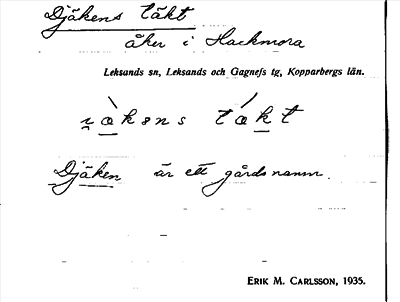 Djäkens täkt
åker i Hackmora
Leksands sn, Leksands och Gagnefs tg, Kopparbergs län.
tækt
Djäken är ett gårdsnamn.
ERIK M. CARLSSON, 1935.